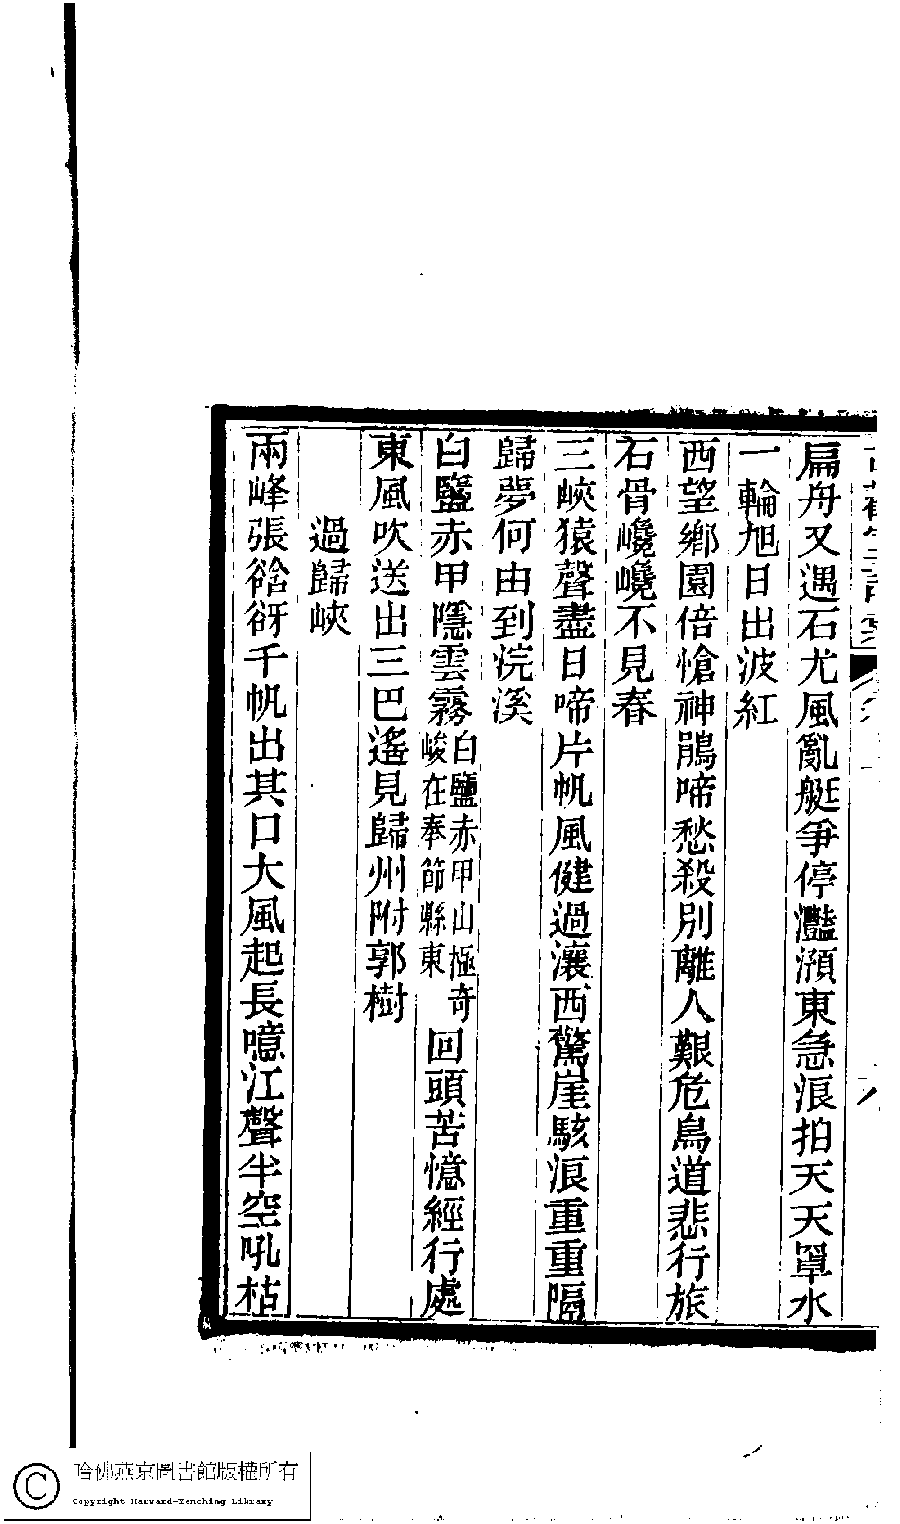 扁舟又遇石尤風亂艇爭停灩澦東急浪拍天天罩水
一輪旭日出波紅
西望鄉園倍愴神鵑啼愁殺別離人艱危鳥道悲行旅
石骨巉巉不見春
三峽猿聲盡日啼片帆風健過瀼西驚崖駭浪重重隔
歸夢何由到浣溪
白鹽赤甲隱雲霧白鹽赤甲山極奇峻在奉節縣東回頭苦憶經行處
東風吹送出三巴遙見歸州附郭樹
過歸峽
兩峰張谽谺千帆出其口大風起長噫江聲半空吼枯
哈佛燕京圖書館版權所有
Copyright Harvard-Yenching Library